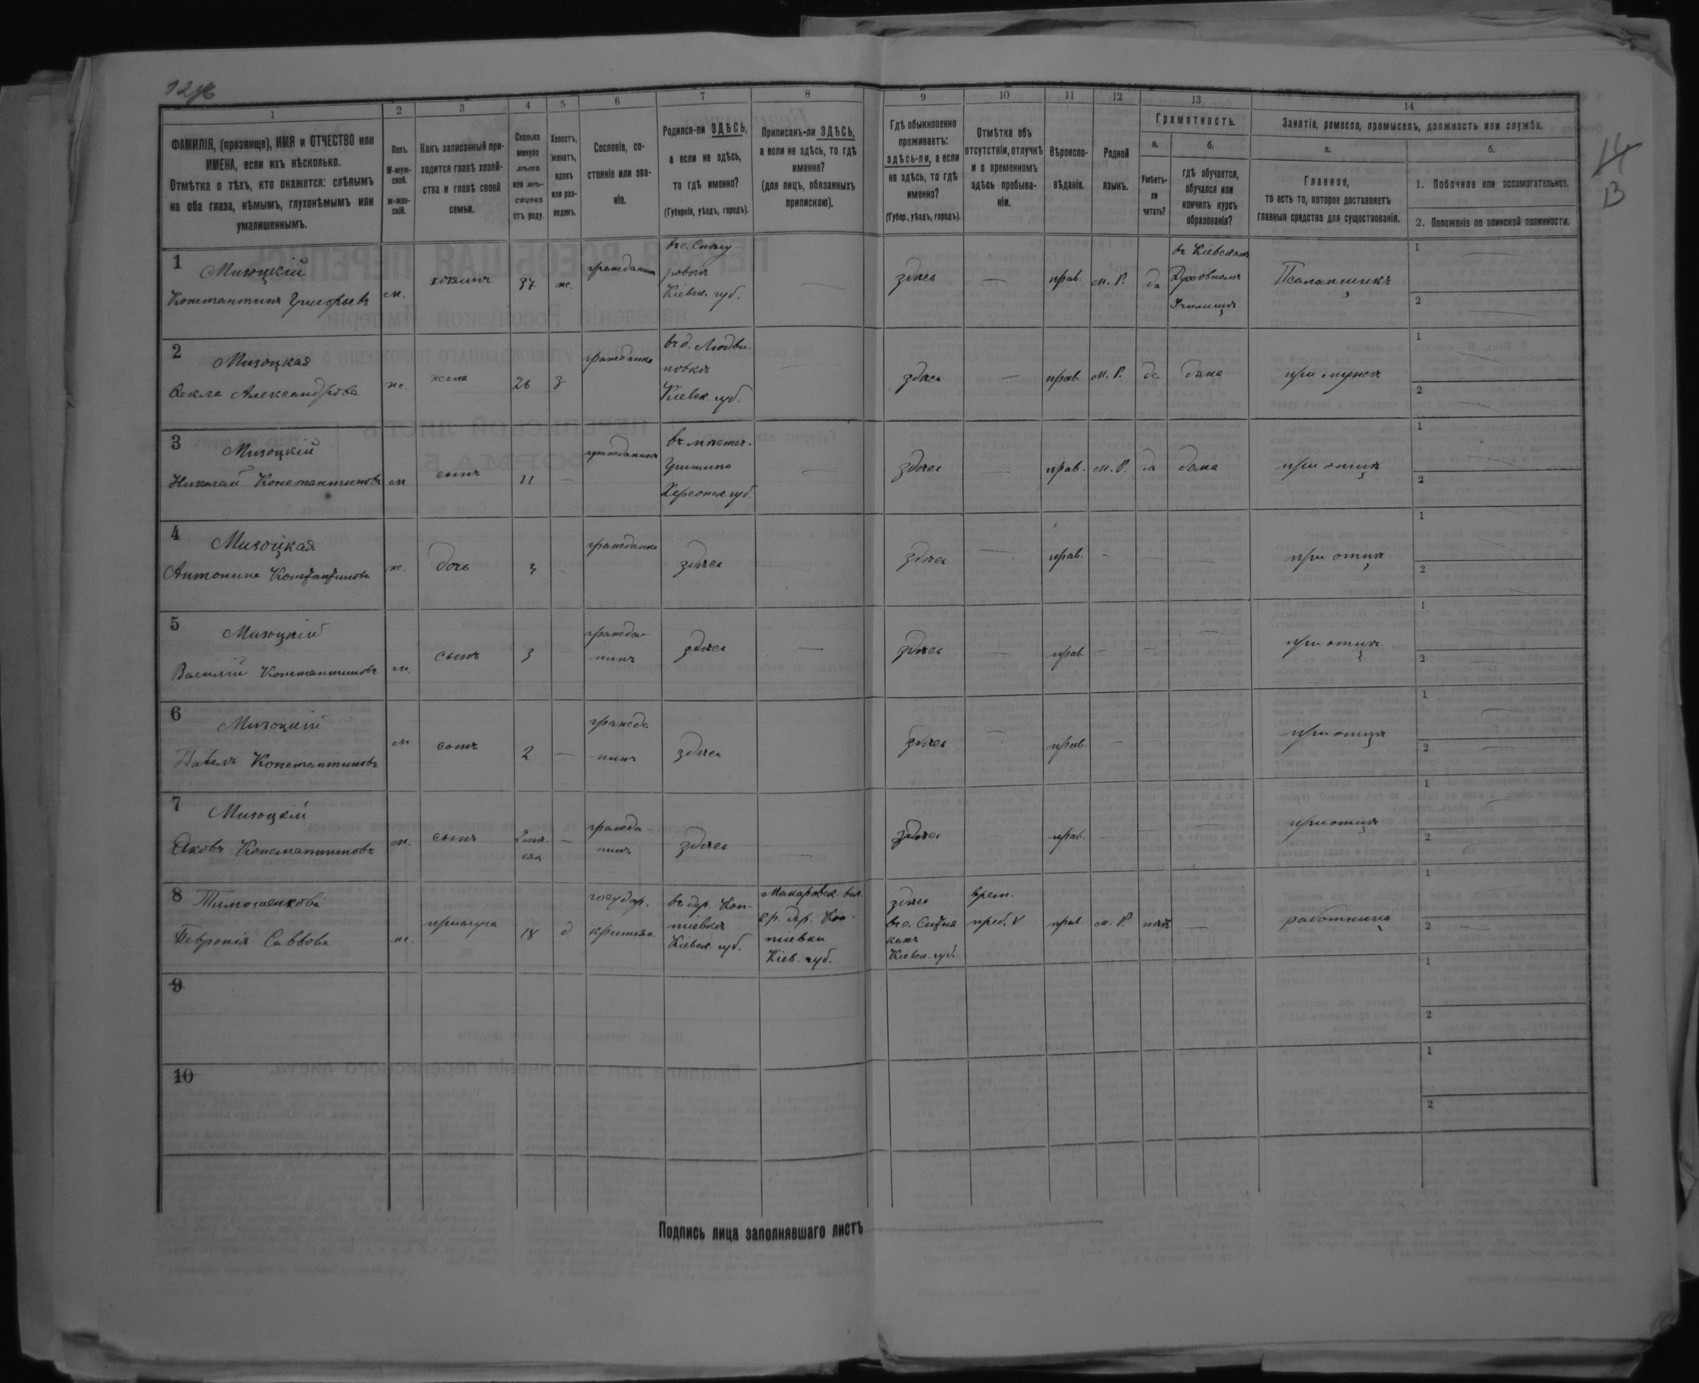 1 2 3 4 5 6 7 8 9 10 11 12 13 14
ФАМИЛІЯ, (прозвище), ИМЯ и ОТЧЕСТВО или
ИМЕНА, если ихъ нѣсколько.
Отмѣтка о тѣхъ, кто окажется: слѣпымъ
на оба глаза, нѣмымъ, глухонѣмымъ или
умалишеннымъ.
Полъ.
М-муж-
ской.
ж-жен-
скій.
Какъ записанный при-
ходится главѣ хозяй-
ства и главѣ своей
семьи.
Сколько
минуло
лѣтъ
или мѣ-
сяцевъ
отъ роду.
Холостъ,
женатъ,
вдовъ
или раз-
веденъ.
Сословіе, со-
стояніе или зва-
ніе.
Родился-ли ЗДѢСЬ,
а если не здѣсь,
то гдѣ именно?
(Губернія, уѣздъ, городъ).
Приписанъ-ли ЗДѢСЬ,
а если не здѣсь, то гдѣ
именно?
(для лицъ, обязанныхъ
припискою).
Гдѣ обыкновенно
проживаетъ:
здѣсь-ли, а если
не здѣсь, то гдѣ
именно?
(Губер., уѣздъ, городъ).
Отмѣтка объ
отсутствіи, отлучкѣ
и о временномъ
здѣсь пребыва-
ніи.
Вѣроиспо-
вѣданіе.
Родной
языкъ.
Грамотность.
а.
Умѣетъ-
ли
читать?
б.
гдѣ обучается,
обучался или
кончилъ курсъ
образованія?
Занятіе, ремесло, промыселъ, должность или служба.
а.
Главное,
то есть то, которое доставляетъ
главныя средства для существованія.
б.
1. Побочное или вспомогательное.
2. Положеніе по воинской повинности.
1 Мизоцкій
Константинъ Григорьевъ м. хозяинъ 37 ж. гражданин
Кіевск. губ. — здѣсь — прав. м. Р. да
въ Кіевскомъ
Духовномъ
Училищѣ
Псаломщикъ 1 2
2 Мизоцкая
Фекла Александрова ж. жена 26 з гражданка
въ д. Людви-
новкѣ
Кіевск. губ. — здѣсь — прав. м. Р. да дома при мужѣ 1 2
3 Мизоцкій
Николай Константиновъ м сынъ 11 — гражданинъ
въ местеч.
Херсонск. губ — здѣсь — прав. м. Р. да дома при отцѣ 1 2
4 Мизоцкая
Антонина Константинова ж. дочь 4 — гражданка здѣсь — здѣсь — прав. — — при отцѣ 1 2
5 Мизоцкій
Василій Константиновъ м. сынъ 3 —
гражда-
нинъ здѣсь — здѣсь — прав. — — — при отцѣ 1 2
6 Мизоцкій
Павелъ Константиновъ м сынъ 2 —
гражда
нинъ здѣсь здѣсь — прав. — при отцѣ 1 2
7 Мизоцкій
Яковъ Константиновъ м. сынъ —
гражда
нинъ здѣсь — здѣсь — прав. — — — при отцѣ 1 2
8 Тимошенкова
Февронія Саввова ж. прислуга 18 д
государ.
крестьян.
въ дер. Коп-
тіевкѣ
Кіевск. губ.
Макаровск. вол.
др. Коп-
тіевки
Кіев. губ.
здѣсь
Кіевск. губ.
врем.
преб. V прав м. Р. нѣтъ — работница 1 2
9 1 2
10 1 2
Подпись лица заполнявшаго листъ